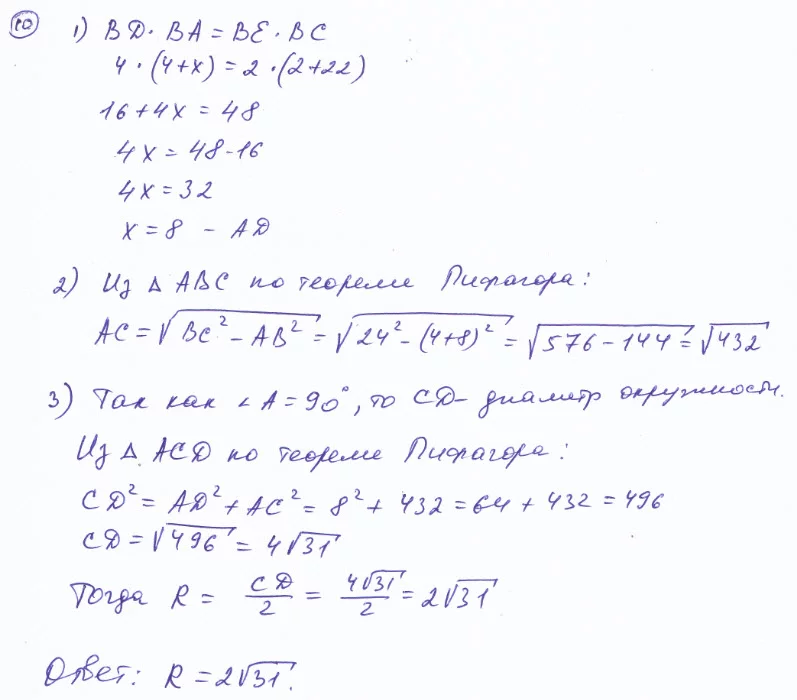 10
1) BD · BA = BE · BC
4 · (4+x) = 2 · (2+22)
16+4x = 48
4x = 48-16
4x = 32
x = 8 - AD
2) Из Δ ABC по теореме Пифагора:
AC = √(BC² - AB²) = √(24² - (4+8)²) = √(576 - 144) = √432
3) Так как ∠A = 90°, то CD - диаметр окружности.
Из Δ ACD по теореме Пифагора:
CD² = AD² + AC² = 8² + 432 = 64 + 432 = 496
CD = √496 = 4√31
Тогда R = CD/2 = 4√31/2 = 2√31
Ответ: R = 2√31.